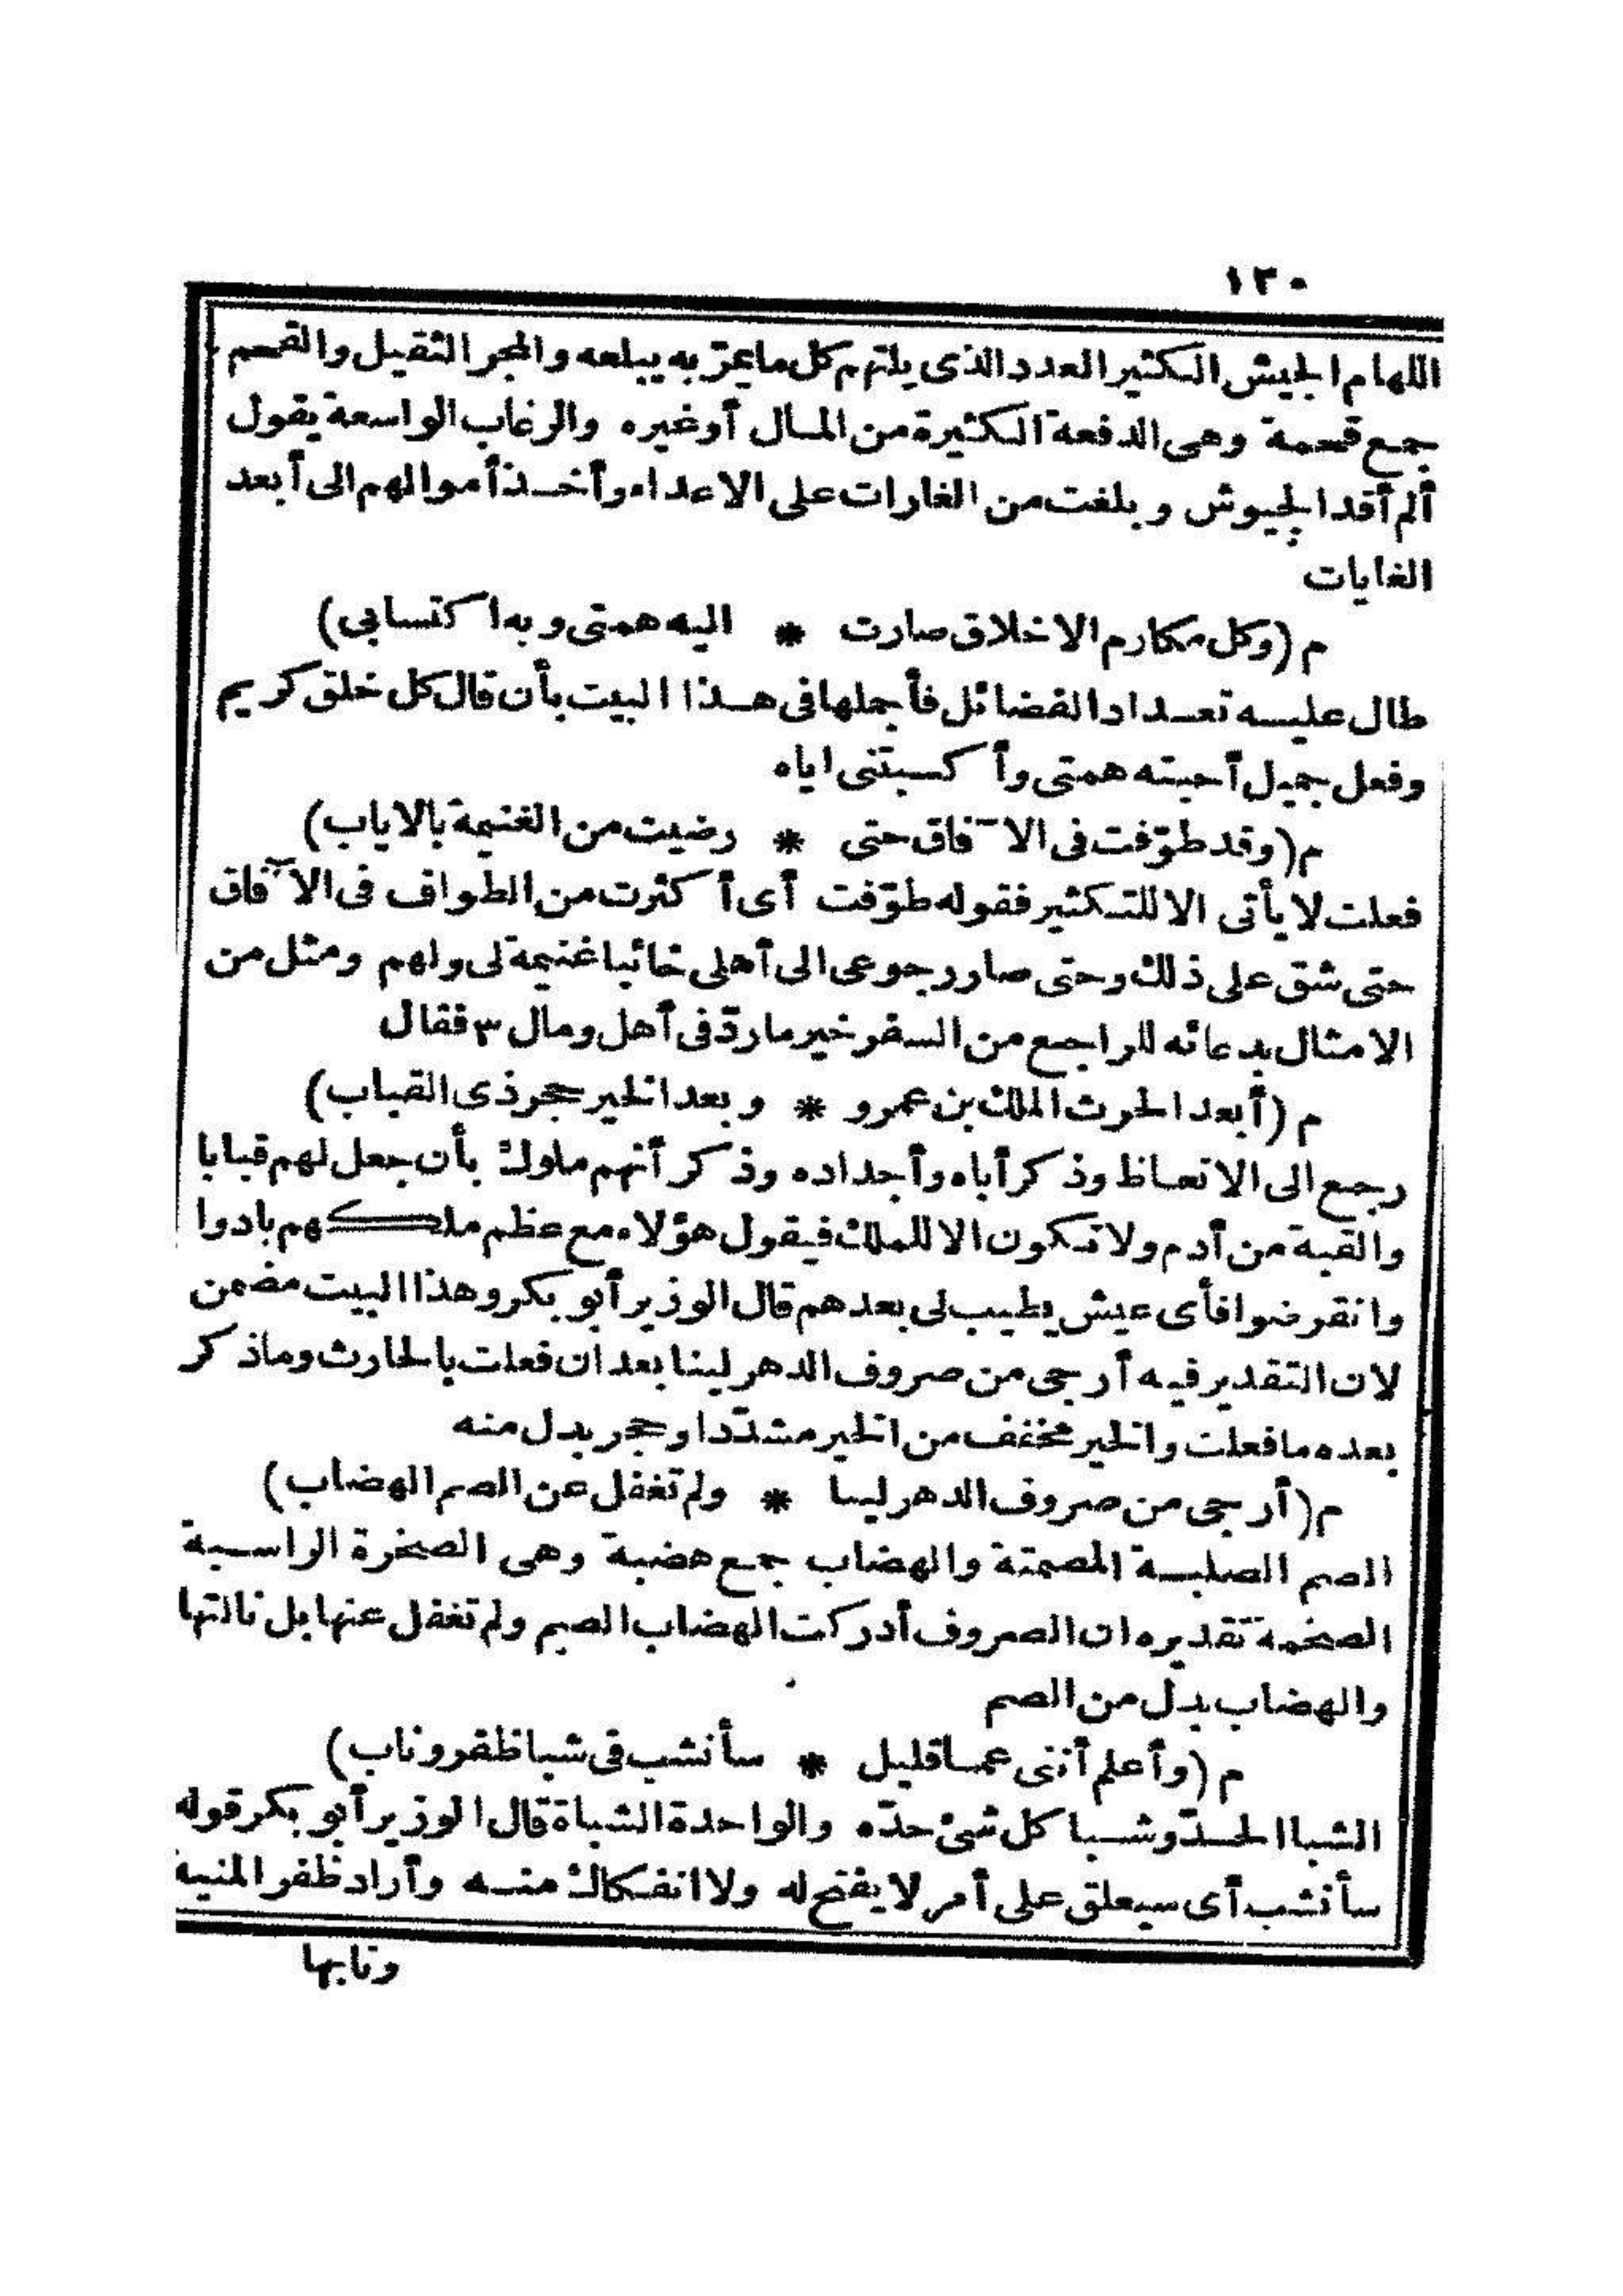 ١٣٠
اللهام الجيش الكثير العدد الذى يلتهم كل ما يمرّ به يبلعه والمجر الثقيل والقحم
جمع قحمة وهى الدفعة الكثيرة من المال أو غيره والرغاب الواسعة يقول
ألم أقد الجيوش وبلغت من الغارات على الاعداء وأخذ أموالهم الى أبعد
الغايات
م (وكل مكارم الاخلاق صارت * اليه همتى وبه اكتسابى)
طال عليه تعداد الفضائل فأجملها فى هذا البيت بأن قال كل خلق كريم
وفعل جميل أحبته همتى وأكسبتنى اياه
م (وقد طوّفت فى الآفاق حتى * رضيت من الغنيمة بالاياب)
فعلت لا يأتى الا للتكثير فقوله طوّفت أى أكثرت من الطواف فى الآفاق
حتى شق على ذلك وحتى صار رجوعى الى أهلى خائبا غنيمة لى ولهم ومثل من
الامثال بدعائه للراجع من السفر خير ما ردّ فى أهل ومال ٣ فقال
م (أبعد الحرث الملك بن عمرو * وبعد الخير حجر ذى القباب)
رجع الى الاتعاظ وذكر أباه وأجداده وذكر أنهم ملوك بأن جعل لهم قبابا
والقبة من أدم ولا تكون الا للملك فيقول هؤلاء مع عظم ملكهم بادوا
وانقرضوا فأى عيش يطيب لى بعدهم قال الوزير أبو بكر وهذا البيت مضمن
لان التقدير فيه أرجى من صروف الدهر لينا بعد ان فعلت بالحارث وماذكر
بعده ما فعلت والخير مخفف من الخير مشدّدا وحجر بدل منه
م (أرجى من صروف الدهر لينا * ولم تغفل عن الصم الهضاب)
الصم الصلبة المصمتة والهضاب جمع هضبة وهى الصخرة الراسية
الضخمة تقديره ان الصروف أدركت الهضاب الصم ولم تغفل عنها بل نالتها
والهضاب بدل من الصم
م (وأعلم أننى عما قليل * سأنشب فى شبا ظفر وناب)
الشبا الحدّ وشبا كل شئ حدّه والواحدة الشباة قال الوزير أبو بكر قوله
سأنشب أى سيعلق على أمر لا يفتح له ولا انفكاك منه وأراد ظفر المنية
ونابها